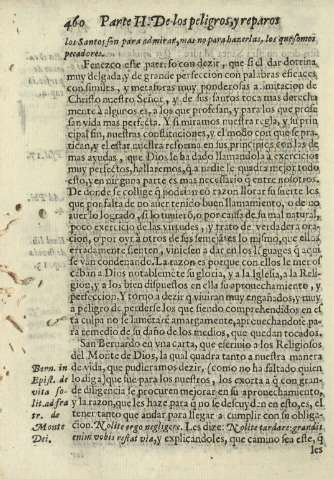 460 Parte II. De los peligros, y reparos
los Santos son para admirar, mas no para hazerlas, los que somos
pecadores.
Fenezco este parrafo con dezir, que si el dar dotrina
muy delgada, y de grande perfeccion con palabras eficaces,
con similes, y metaforas muy ponderosas a imitacion de
Christo nuestro Señor, y de sus santos toca mas derecha
mente à algunos es, a los que profesan, y para los que profe
san vida mas perfecta. Y si miramos nuestra regla, y su prin
cipal fin, nuestras constituciones, y el modo con que se pra-
tican, y el estar nuestra reforma en sus principios con las de
mas ayudas, que Dios le ha dado llamandola à exercicios
muy perfectos, hallaremos, q̃ a nadie le quadra mejor todo
esto, y en ninguna parte es mas necessario q̃ entre nosotros.
De donde se collige q̃ podrian cō razon llorar su suerte los
que por falta de no auer tenido buen llamamiento, o de no
auer lo logrado, si lo tuuierō, o por causa de su mal natural,
poco exercicio de las virtudes, y trato de verdadera ora
cion, o por oyr à otros de sus semejātes lo mismo, que ellos
erradamente sienten, viniessen a dar en los lenguages q̃ aqui
se van condenando. La razon es porque con ellos le menos
caban a Dios notablemēte su gloria, y a la Iglesia, a la Reli
gion, y a los bien dispuestos en ella su aprouechamiento, y
perfeccion. Y torno a dezir q̃ viuiran muy engañados, y muy
a peligro de perderse los que siendo comprehendidos en es
ta culpa no se lamētare amargamente, aprouechandose pa-
ra remedio de su daño de los medios, que quedan tocados.
San Bernardo en vna carta, que escriuio a los Religiosos
del Monte de Dios, la qual quadra tanto a nuestra manera
de vida, que pudieramos dezir, (como no ha faltado quien
lo diga) que fue para los nuestros, los exorta a q̃ con gran-
de diligencia se procuren mejorar en su aprouechamiento,
y la razon, que les haze para q̃ no se descuydē en esto, es el
tener tanto que andar para llegar a cumplir con su obliga-
cion. Nolite ergo negligere. Les dize: Nolite tardare: grandis
enim vobis restat via, y explicandoles, que camino sea este, q̃
les
Bern. in
Epist. de
vita so-
lit. ad fra
tr. de
Monte
Dei.